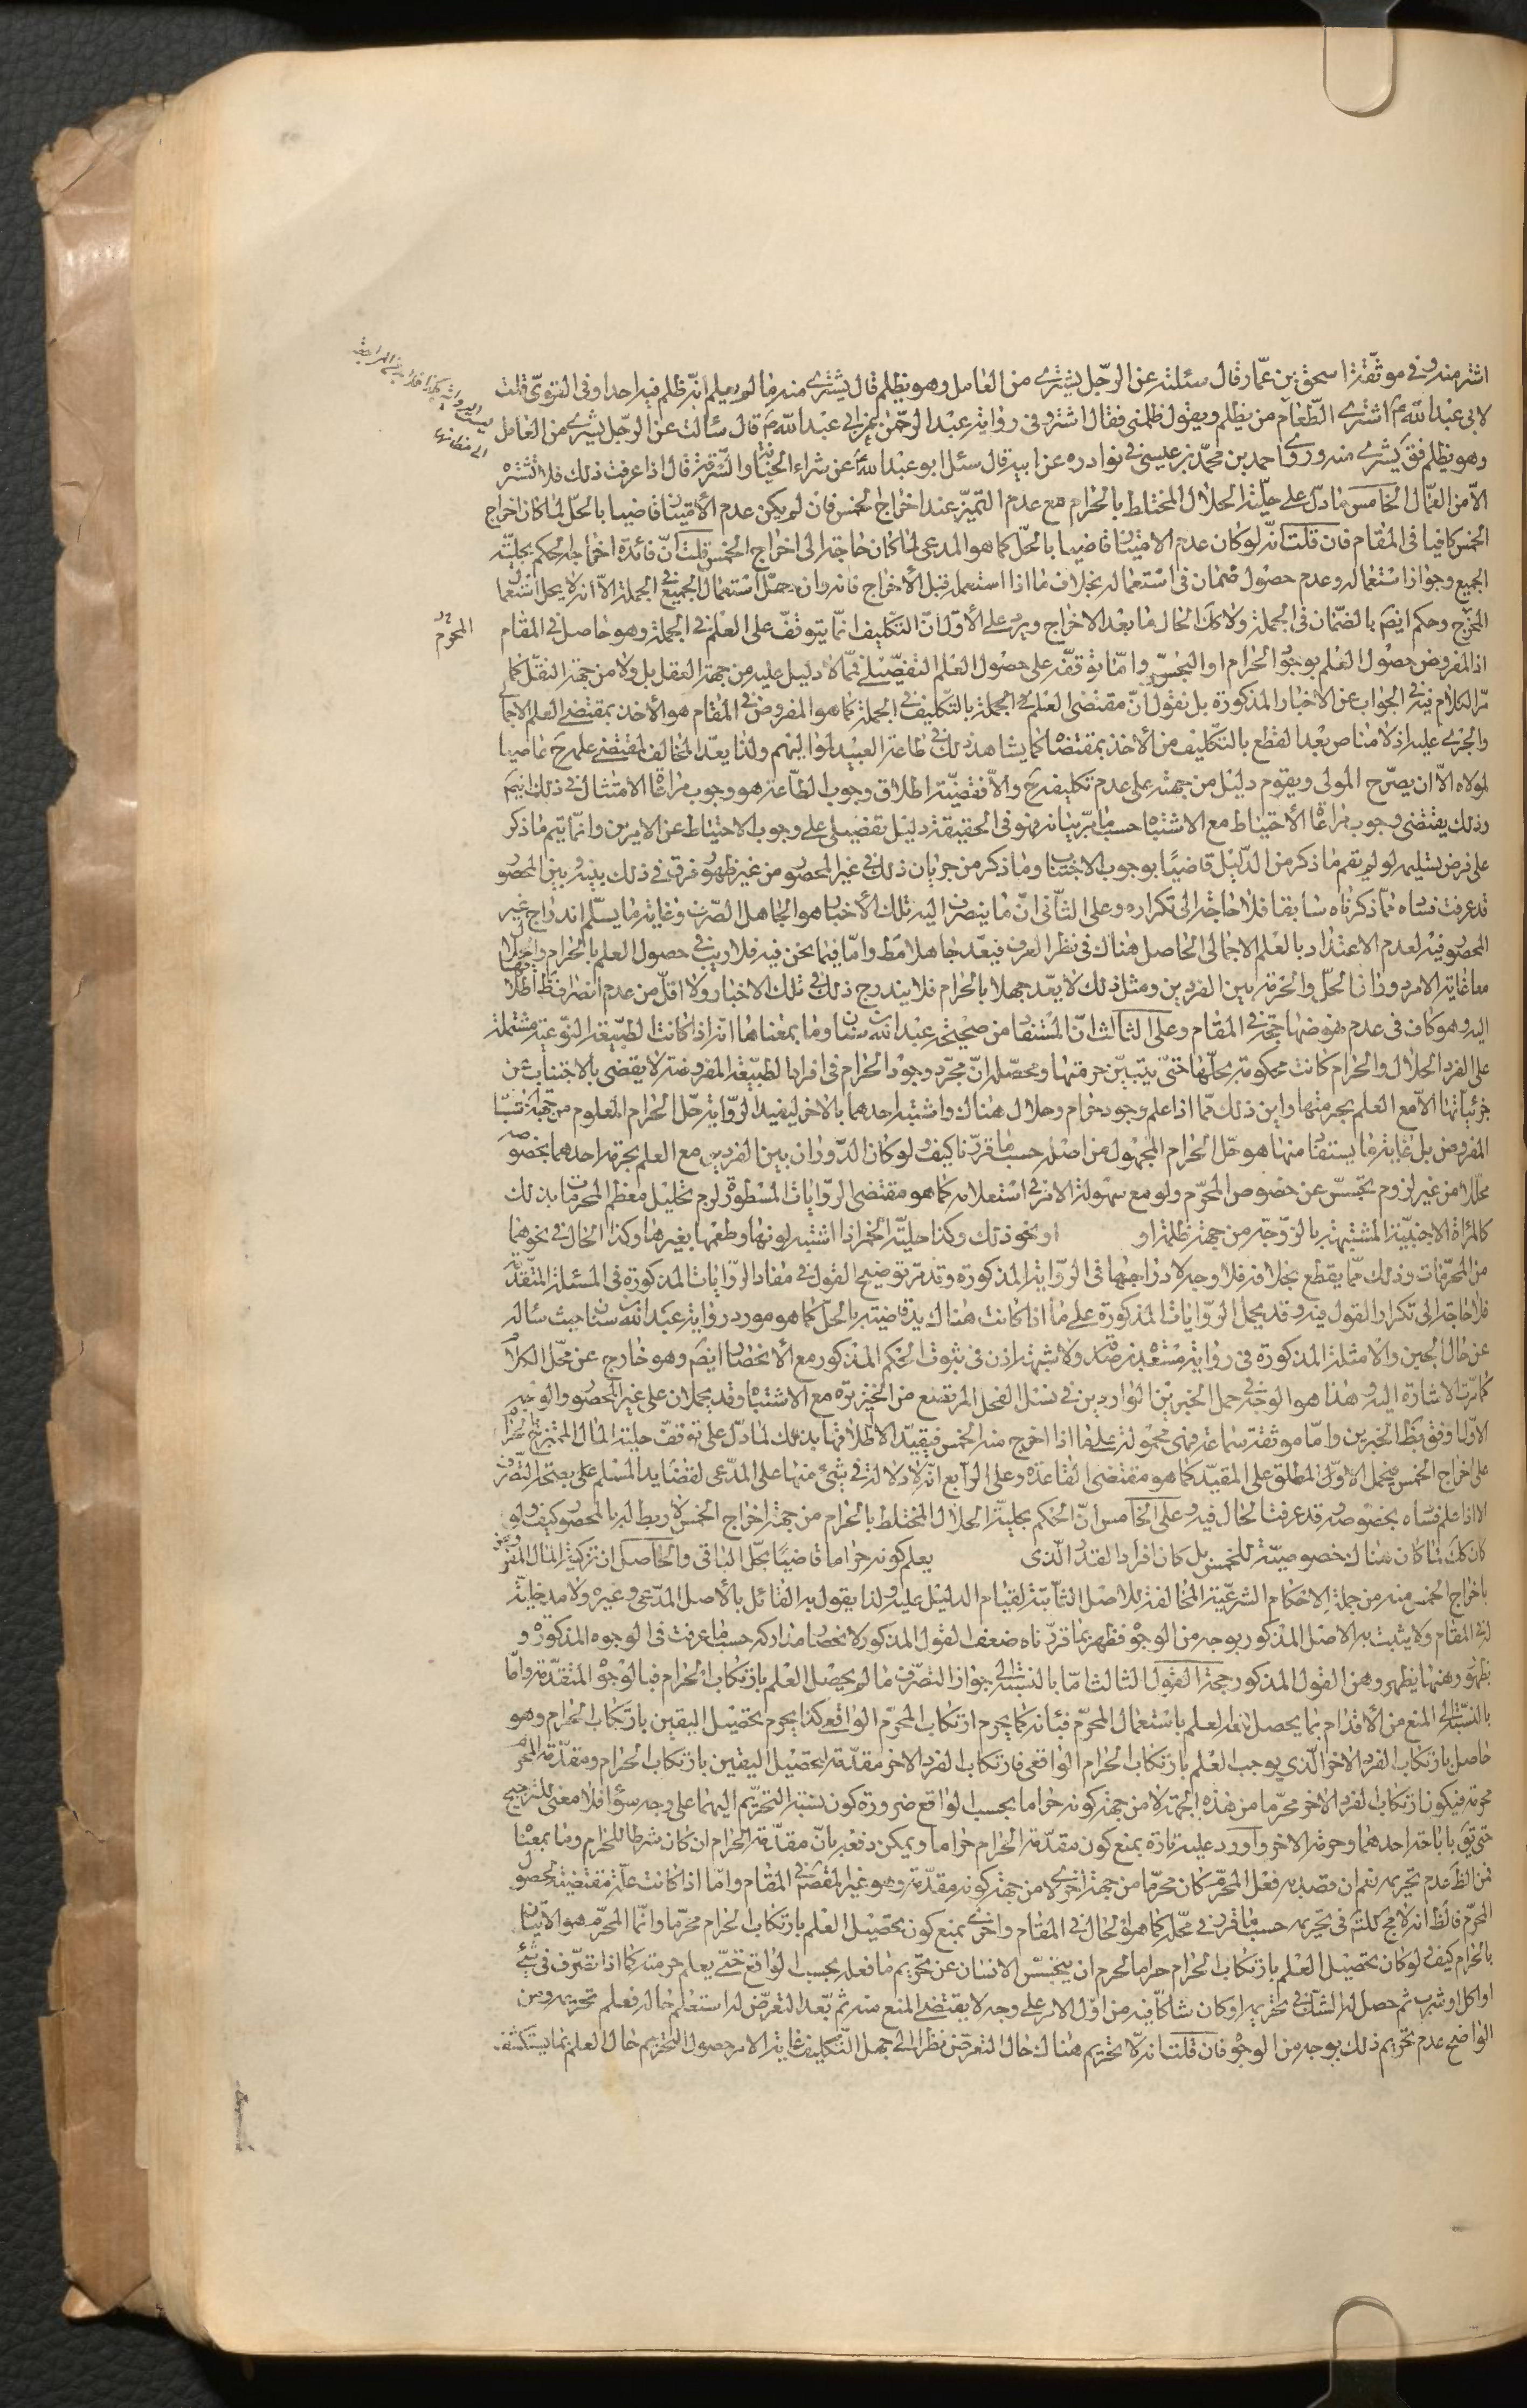 اشتر منه وفي موثّقة اسحق بن عمّار قال سئلته عن الرّجل يشترى من العامل وهو يظلم قال يشترى منه ما لم يعلم انّه ظلم فيه احدا وفى القوىّ قلت
لابى عبد الله ع اشترى الطّعام من يظلم ويقول ظلمنى فقال اشتره وفى رواية عبد الرّحمن عن ابى عبد الله ع قال سألت عن الرّجل يشترى من العامل
وهو يظلم فق يشترى منه وروى احمد بن محمّد بن عيسى في نوادره عن ابيه قال سئل ابو عبد الله ع عن شراء الخيانة والسّرقة قال اذا عرفت ذلك فلا تشتره
الاّ من العمّال الخامس ما دلّ على حلّية الحلال المختلط بالحرام مع عدم التميّز عند اخراج الخمس فان لم يكن عدم الأمتياز قاضيا بالحلّ لما كان اخراج
الخمس كافيا فى المقام فان قلت انّه لو كان عدم الامتياز قاضيا بالحلّ كما هو المدعى لما كان حاجة الى اخراج الخمس قلت انّ فائدة اخراجه الحكم بحليّة
الجميع وجواز استعماله وعدم حصول ضمان فى استعماله بخلاف ما اذا استعمل قبل الأخراج فانه وان حلّ استعمال الجميع فى الجملة الاّ انه لا يحلّ استعمال
المخرج وحكم ايضَ بالضّمان فى الجملة ولا كك الحال ما بعد الاخراج ويرد على الأوّل انّ التّكليف انّما يتوقّف على العلم فى الجملة وهو حاصل فى المقام
المحرم
اذ المفروض حصول العلم بوجود الحرام او النجس وامّا توقّفه على حصول العلم التفصيلى فممّا لا دليل عليه من جهة العقل بل ولا من جهة النقل كما
مرّ الكلام فيه فى الجواب عن الاخبار المذكورة بل نقول انّ مقتضى العلم فى الجملة بالتّكليف فى الجملة كما هو المفروض فى المقام هو الأخذ بمقتضى العلم الاجمالى
والجرى عليه اذ لا مناص بعد القطع بالتّكليف من الأخذ بمقتضاه كما يشاهد ذلك فى طاعة العبيد لمواليهم ولذا يعدّ المخالف لمقتضى علمه ح عاصيا
لمولاه الاّ ان يصرّح المولى ويقوم دليل من جهته على عدم تكليفه ح والاّ فقضيّة اطلاق وجوب الطّاعة هو وجوب مراعاة الامتثال فى ذلك ايضَ
وذلك يقتضى وجوب مراعاة الأحتياط مع الاشتباه حسبما مرّ بيانه فهو فى الحقيقة دليل تفصيلى على وجوب الاحتياط عن الامرين وانّما يتمّ ما ذكر
على فرض تسليمه لو لم يقم ما ذكر من الدّليل قاضيًا بوجوب الاجتناب وما ذكر من جريان ذلك فى غير المحصور من غير ظهور فرق فى ذلك بينه وبين المحصور
قد عرفت فساه ممّا ذكرناه سابقا فلا حاجة الى تكراره وعلى الثّانى انّ ما ينصرف اليه تلك الأخبار هو الجاهل الصّرف وغاية ما يسلّم اندراج غير
المحصور فيه لعدم الاعتداد بالعلم الاجمالى الحاصل هناك فى نظر العرف فيعدّ جاهلا مط وامّا فيما نحن فيه فلا ريب فى حصول العلم بالحرام والحلال
معا غاية الامر دوران الحلّ والحرمة بين الفردين ومثل ذلك لا يعدّ جهلا بالحرام فلا يندرج ذلك فى تلك الاخبار ولا اقلّ من عدم انصراف ظ اطلاقها
اليه وهو كاف فى عدم نهوضها حجّة فى المقام وعلى الثالث انّ المستفاد من صحيحة عبد الله بن سنان وما بمعناها انّه اذا كانت الطّبيعة النّوعيّة مشتملة
على الفرد الحلال والحرام كانت محكومة بحلّها حتّى يتبيّن حرمتها ومحصّله انّ مجرّد وجود الحرام فى افراد الطبيعة المفروضة لا يقضى بالاجتناب عن
جزئيّاتها الاّ مع العلم بحرمتها واين ذلك ممّا اذا علم وجود حرام وحلال هناك واشتبه احدهما بالاخر ليفيد الرّواية حلّ الحرام المعلوم من جهة اشتباه
المفروض بل غاية ما يستفاد منها هو حلّ الحرام المجهول من اصله حسبما قرّرنا كيف ولو كان الدّوران بين الفردين مع العلم بحرمة احدهما بخصوصه
محلّلا من غير لزوم تجسّس عن خصوص المحرّم ولو مع سهولة الامر فى استعلامه كما هو مقتضى الرّوايات المسطورة لزم تحليل معظم المحرمات بذلك
كالمرأة الاجنبيّة المشتبهة بالزّوجة من جهة ظلمة او او نحو ذلك وكذا حليّة الخمر اذا اشتبه لونها وطعمها بغيرها وكذا الحال فى نحوهما
من المحرّمات وذلك ممّا يقطع بخلافه فلا وجه لادراجها فى الرّواية المذكورة وقد مرّ توضيح القول فى مفاد الرّوايات المذكورة فى المسئلة المتقدّمة
فلا حاجة الى تكرار القول فيه وقد يحمل الرّوايات المذكورة على ما اذا كانت هناك يد قاضية بالحلّ كما هو مورد رواية عبد الله بن سنان حيث سأله
عن حال الجبن والأمثلة المذكورة فى رواية مسعدة بن صدقة ولا شبهة اذن فى ثبوت الحكم المذكور مع الأنحصار ايضَ وهو خارج عن محلّ الكلام
كما مرّت الاشارة اليه وهذا هو الوجه فى حمل الخبرين الواردين فى نسل الفحل المرتضع من الخنزيرة مع الاشتباه وقد يحملان على غير المحصور والوجه
الاوّل اوفق بظ الخبرين وامّا موثقة سماعة فهى محمولة على ما اذا اخرج منه الخمس فيقيّد الاطلاق فيها بذلك لما دلّ على توقّف حلية المال الممتزج بالحرام
على اخراج الخمس فيحمل الاوّل المطلق على المقيّد كما هو مقتضى القاعدة وعلى الرّابع انّه لا دلالة فى شىء منها على المدّعى لقضاء يد المسلم على بصحّة التصرّف
الا اذا علم فساه بخصوصه وقد عرفت الحال فيه وعلى الخامس انّ الحكم بحليّة الحلال المختلط بالحرام من جهة اخراج الخمس لا ربط له بالمحصور كيف ولو
كان كك لما كان هناك خصوصيّة للخمس بل كان افراد القدر الّذى يعلم كونه حراما قاضيًا بحلّ الباقى والحاصل ان تزكية المال المفروض
باخراج الخمس منه من جملة الاحكام الشرعيّة المخالفة للاصل الثّابتة لقيام الدليل عليه ولذا يقول به القائل بالأصل المدّعى وغيره ولا مدخليّة
له فى المقام ولا يثبت به الاصل المذكور بوجه من الوجوه فظهر بما قرّرناه ضعف القول المذكور لانحصار مداركه حسبما عرفت فى الوجوه المذكورة و
بظهور وهنها يظهر وهن القول المذكور حجة القول الثالث امّا بالنسبة الى جواز التصرّف ما لم يحصل العلم بارتكاب الحرام فبالوجوه المتقدّمة وامّا
بالنّسبة الى المنع من الأقدام بما يحصل معه العلم باستعمال المحرّم فبأنه كما يحرم ارتكاب المحرّم الواقعى كذا يحرم تحصيل اليقين بارتكاب الحرام وهو
حاصل بارتكاب الفرد الاخر الّذى يوجب العلم بارتكاب الحرام الواقعى فارتكاب الفرد الاخر مقدّمة لتحصيل اليقين بارتكاب الحرام ومقدّمة المحرّم
محرمة فيكون ارتكاب الفرد الاخر محرّما من هذه الجهة لا من جهة كونه حراما بحسب الواقع ضرورة كون نسبة التحريم اليهما على وجه سواء فلا معنى للترجيح
حتى يق باباحة احدهما وحرمة الاخر واورد عليه تارة بمنع كون مقدّمة الحرام حراما ويمكن دفعه بانّ مقدّمة الحرام ان كان شرطا للحرام وما بمعناه
فمن الظ عدم تحريمه نعم ان قصد به فعل المحرّم كان محرّما من جهة اخرى لا من جهة كونه مقدّمة وهو غير المقصود فى المقام وامّا اذا كانت علّة مقتضية لحصول
المحرّم فالظ انه لا مجال للتامّل فى تحريمه حسبما قرّر فى محلّه كما هو الحال فى المقام واخرى بمنع كون تحصيل العلم بارتكاب الحرام محرّما وانّما المحرّم هو الاتيان
بالحرام كيف ولو كان تحصيل العلم بارتكاب الحرام حراما لحرم ان يتجسّس الانسان عن تحريم ما فعله بحسب الواقع حتّى يعلم حرمته كما اذا تصرّف فى شىء
او اكل او شرب ثم حصل له الشّك فى تحريمه او كان شاكّا فيه من اوّل الامر على وجه لا يقتضى المنع منه ثم بعد التعرّض له استعلم حاله فعلم تحريمه ومن
الواضح عدم تحريم ذلك بوجه من الوجوه فان قلت انه لا تحريم هناك حال التعرّض نظرا الى جهل التّكليف غاية الامر حصول التحريم حال العلم بما يستكشف